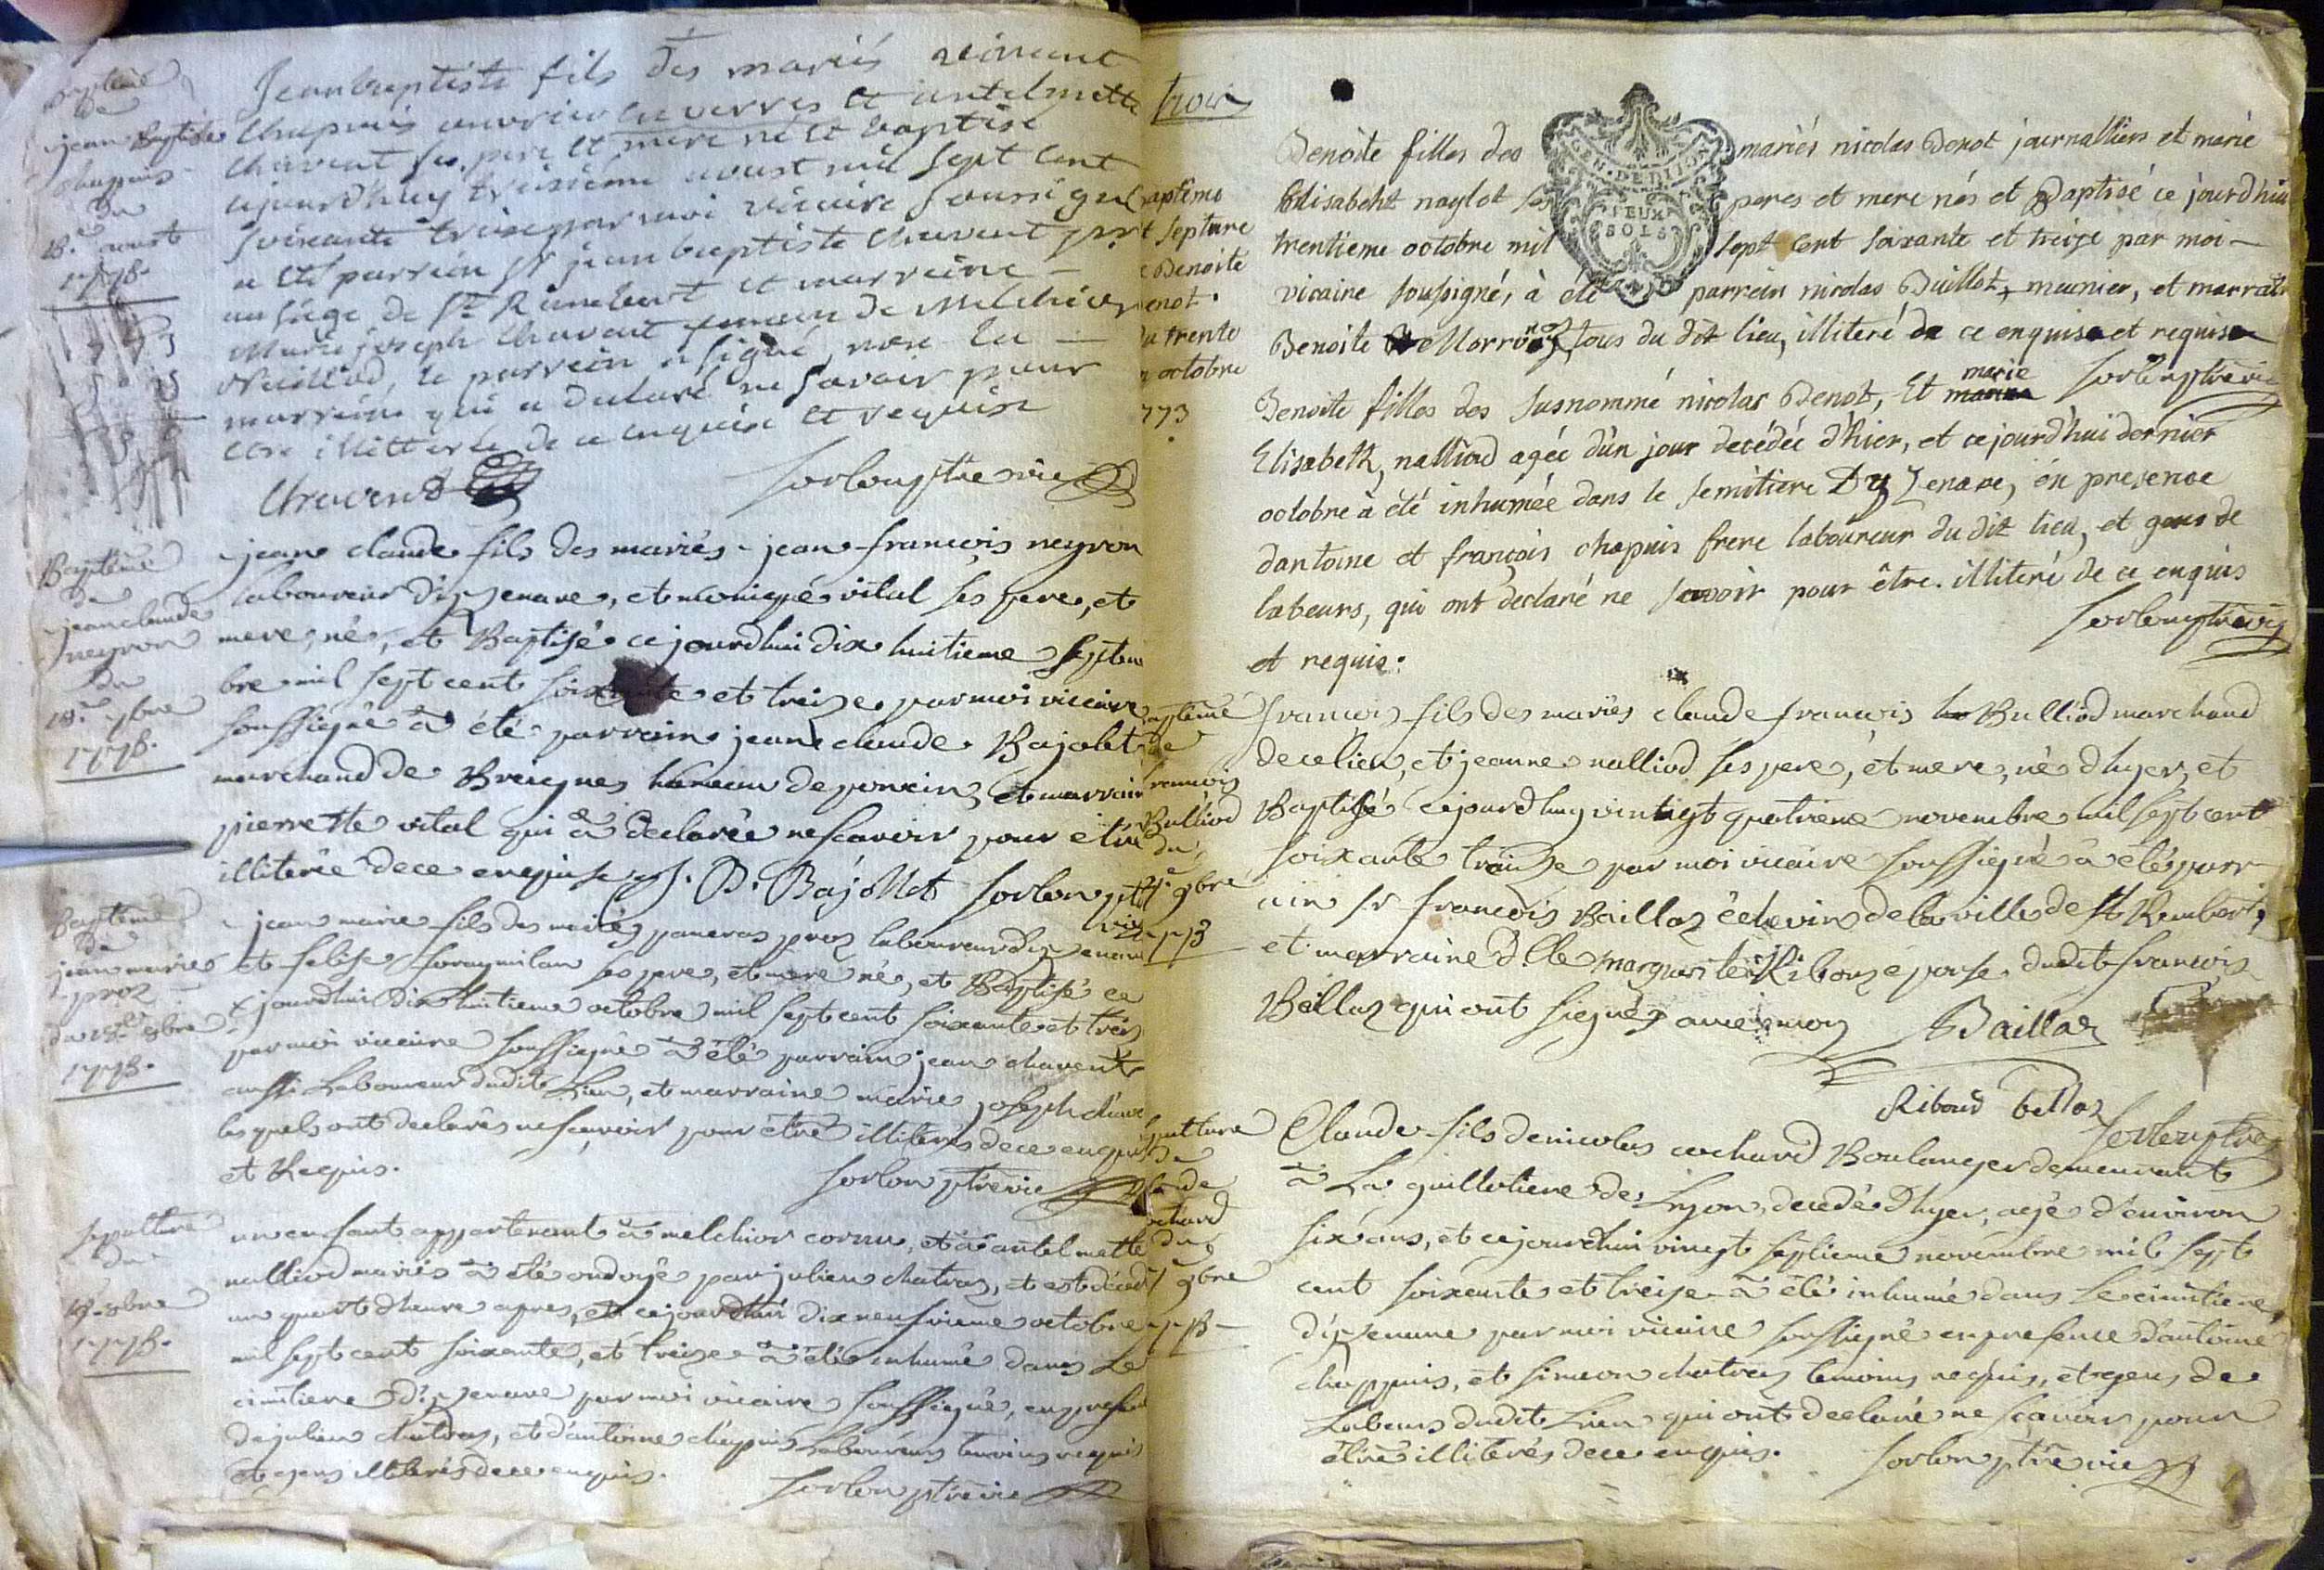 Baptême
de
jean Baptiste
chappuis
du
13.e aoust
1773.
jean baptiste fils des mariés
Chapuis ouvrier en verres et antelmette
Chavent ses pere et mere né et baptisé
aujourdhuy treizieme aoust mil sept cent
soixante treize par moi vicaire soussigné
a été parrein Sr jean baptiste Chavent
au siége de St Rambert et marreine
Marie joseph Chavent femme de Melchior
Nailliod, le parrein a signé, non la
marreine qui a declaré ne savoir pour
etre illitterée de ce enquise et requise
Chavent
sorlon ptre vic
Baptême
de
jean claude
neyron
du
18.e 7bre
1773.
jean claude fils des mariés jean francois neyron
laboureur d'izenave, et monique vital ses pere, et
mere, né, et Baptisé ce jourdhui dix huitieme septem
bre mil sept cent soixante et treize par moi vicaire
soussigné à été parrain jean claude Bajolet
marchand de Breignes hameau de poncin, et marrain
pierrette vital qui à declarée ne scavoir pour etre
illiterée de ce enquise J. B. Bajollet sorlon ptre
vic
Baptême
de
jean marie
proz
du 18.e 8bre
1773.
jean marie fils des mariés pancras proz laboureur d'izenave
et felise ses pere, et mere né, et Baptisé ce
jourdhui dix huitieme octobre mil sept cent soixante et treiz
par moi vicaire soussigné à été parrain jean chavent
aussi Laboureur dudit Lieu, et marraine marie joseph
lesquels ont declarés ne scavoir pour être illiterés de ce enquis
et Requis.
sorlon ptre vic
sepulture
du
19. 8bre
1773.
un enfant appartenant à melchior cornu, et à antelmette
nalliod mariés à été ondoyé par julien chatras, et est décédé
un quart d'heure apres, et ce jourdhui dix neufvieme octobre
mil sept cent soixante, et treize à été inhumé dans Le
cimitiere d'izenave par moi vicaire soussigné, en presen
de julien chatras, et d'antoine chapuis Laboureurs temoins requis
et gens illiterés de ce enquis.
sorlon ptre vic
trois
GEN. DE DIJON
DEUX
SOLS
aptême
t septure
e Benoite
enot.
du trente
octobre
773
Benoite filles des mariés nicolas Benot journalliers et marie
Elisabeht naylot ses peres et mere nés et Baptisé ce jourd'hui
trentieme octobre mil sept cent soixante et treize par moi
vicaire soussigné, à été parrein nicolas Buillot, meunier, et marrain
Benoite tous du dit lieu, illiteré de ce enquise et requise
sorlon ptre vic
Benoite filles des susnommé nicolas Benot, Et marie
Elisabeth, nalliod agée d'un jour decédée d'hier, et ce jourd'hui dernier
octobre à été inhumée dans le semitiere D'yzenave, en presence
d'antoine et françois chapuis frere laboureur du dit lieu, et gens de
labeurs, qui ont declaré ne savoir pour être illiteré de ce enquis
et requis.
sorlon ptre vic
aptême
de
francois
Bulliod
du
9bre
1773
francois fils des mariés claude francois Bulliod marchand
de ce lieu, et jeanne nalliod ses pere, et mere, né d'hyer, et
Baptisé ce jourd'huy vintigt quatrieme novembre mil sept cent
soixante traize par moi vicaire soussigné à été parr
ain sr francois Baillaz échevin de la ville de St Rembert,
et marraine d.lle marguerite Riboux epouse dudit francois
Baillaz qui ont signés avec moy Baillaz
Riboud bellaz
sorlon ptre
pulture
de
claude
ochard
du
9bre
1773
Claude fils de nicolas cochard Boulanger demeurant
à La guillotiere de Lyon, decedé d'hyer, agé d'environ
six ans, et ce jourd'hui vingt septieme novembre mil sept
cent soixante et treize à été inhumé dans le cimitiere
d'izenave par moi vicaire soussigné en presence d'antoine
chappuis, et simeon chatras temoins requis, et gens de
Labeurs dudit Lieu qui ont declaré ne scavoir pour
être illiterés de ce enquis. sorlon ptre vic